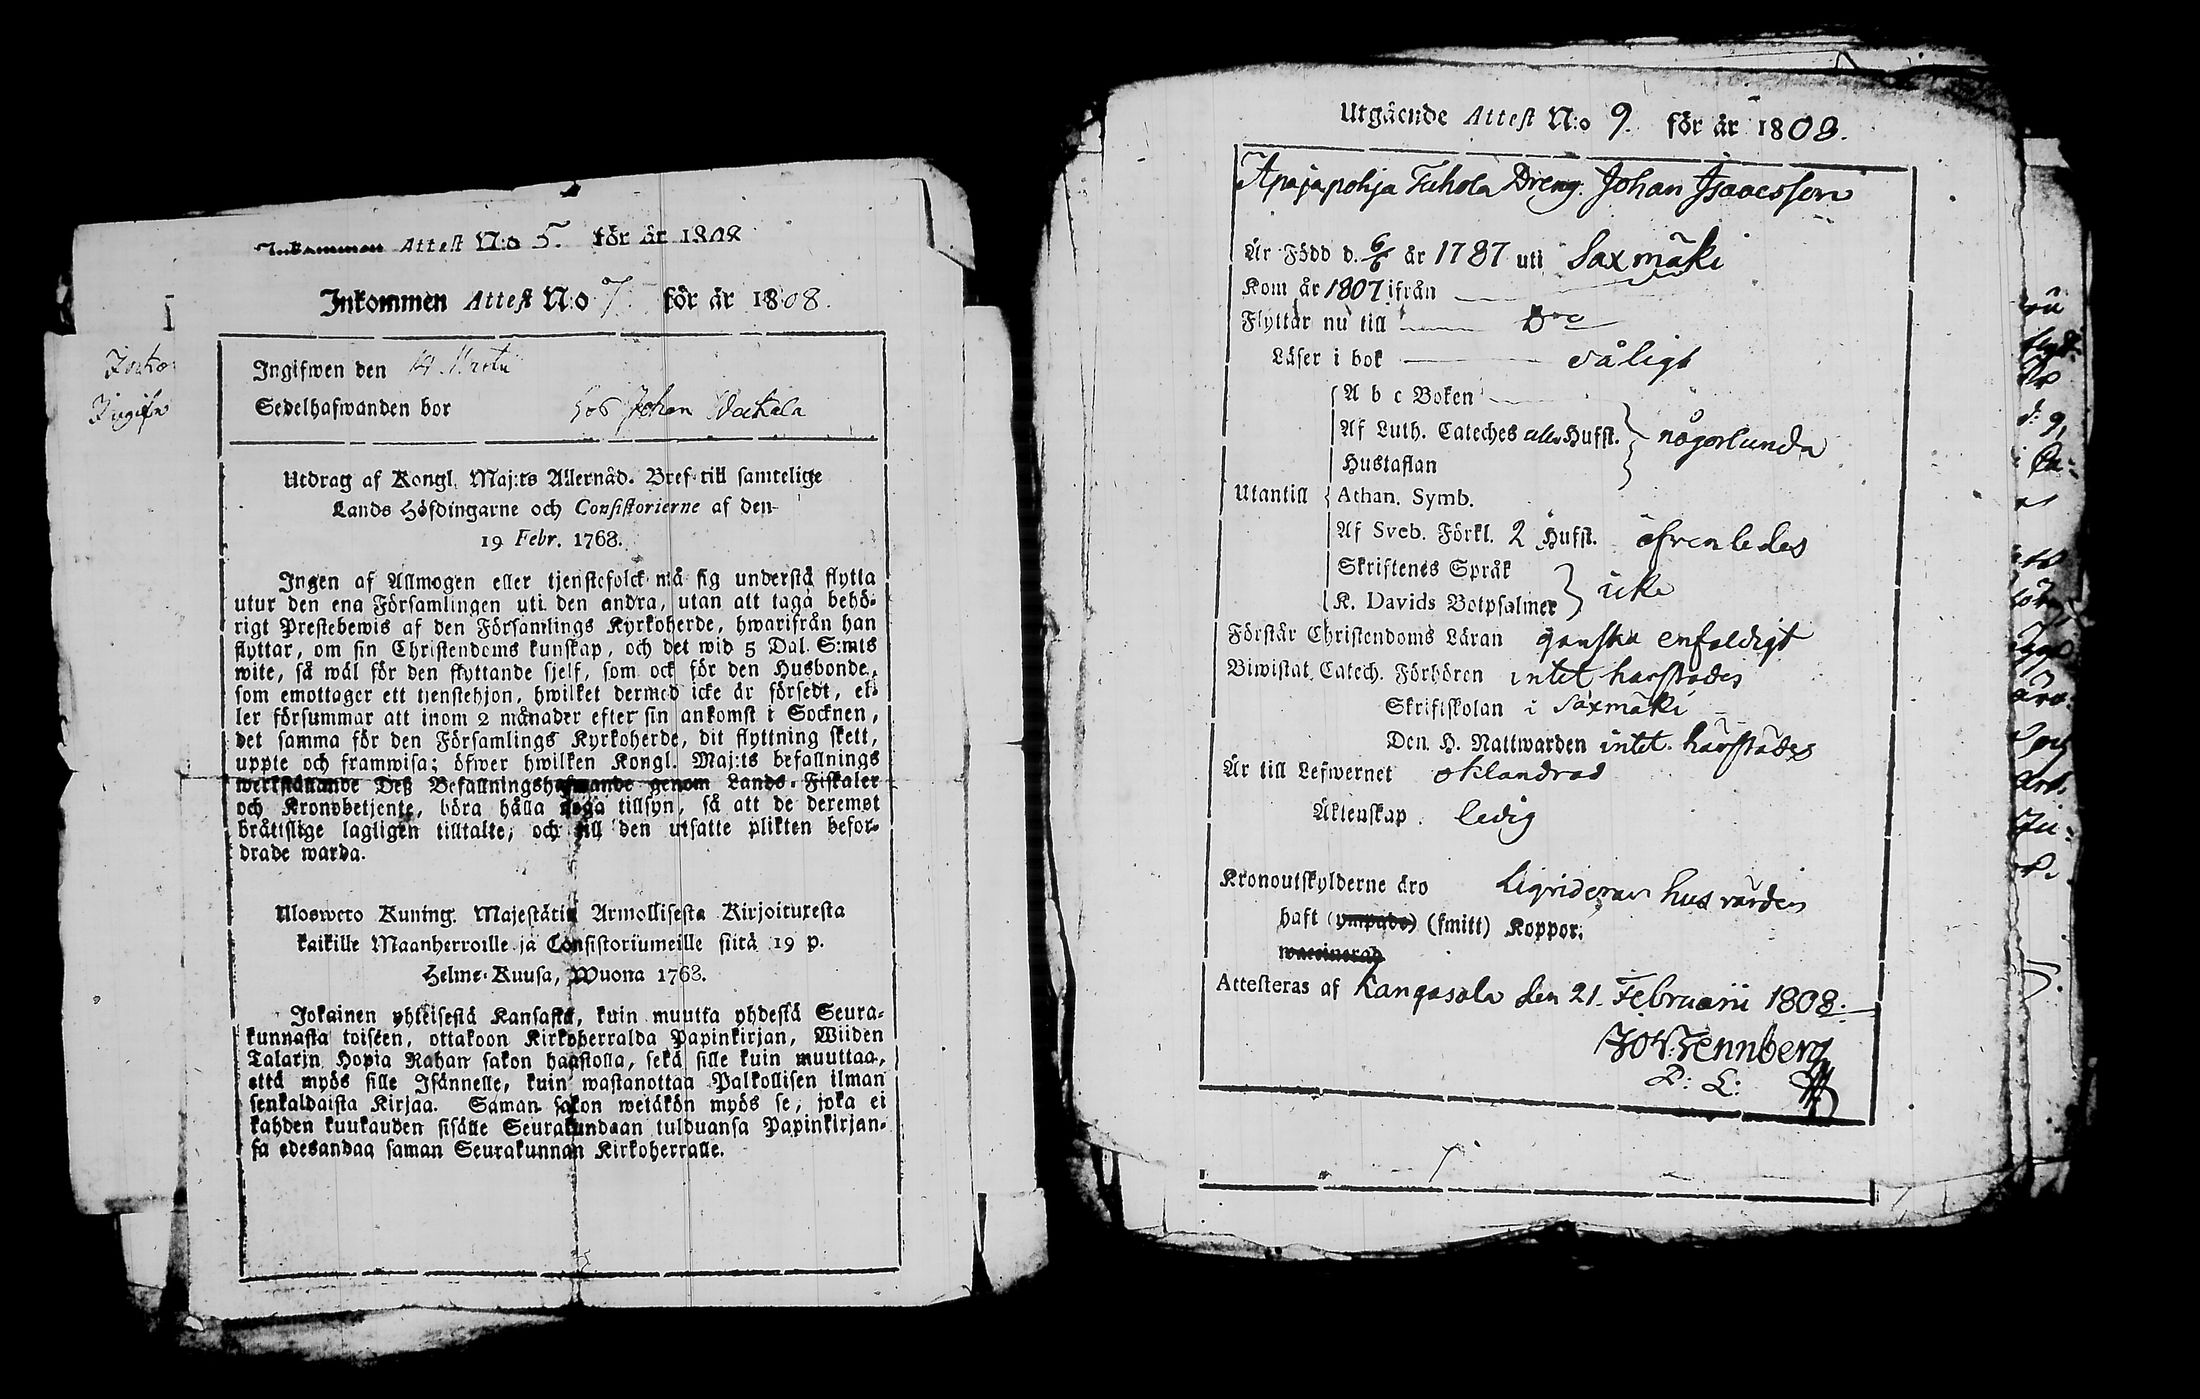 Inkommen Attest N:o 5. för år 1808
Inkommen Attest N:o 7. för år 1808.
Ingifwen den 14 Martii
Sedelhafwanden bor hos Johan
Utdrag af Kongl. Maj:ts Allernåd. Bref till samtelige
Lands Höfdingarne och Consistorierne af den
19 Febr. 1768.
Ingen af Allmogen eller tjenstefolck må sig understå flytta
utur den ena Församlingen uti den andra, utan att taga behö-
rigt Prestebewis af den Församlings Kyrkoherde, hwarifrån han
flyttar, om sin Christendoms kunskap, och det wid 5 Dal. S:mts
wite, så wäl för den flyttande sjelf, som ock för den Husbonde,
som emottager ett tjenstehjon, hwilket dermed icke är försedt, el-
ler försummar att inom 2 månader efter sin ankomst i Socknen,
det samma för den Församlings Kyrkoherde, dit flyttning skett,
uppte och framwisa; öfwer hwilken Kongl. Maj:ts befallnings
werkställande Deß Befallningshafwande genom Lands-Fiskaler
och Kronobetjente, böra hålla noga tillsyn, så att de deremot
bråttslige lagligen tilltalte, och till den utsatte plikten befor-
drade warda.
Ulosweto Kuning. Majestätin Armollisesta Kirjoituresta
kaikille Maanherroille ja Consistoriumeille siitä 19 p.
Helme-Kuusa, Wuona 1768.
Jokainen yhteisestä Kansasta, kuin muutta yhdestä Seura-
kunnasta toiseen, ottakoon Kirkoherralda Papinkirjan, Wiiden
Talarin Hopia Rahan sakon haastolla, sekä sille kuin muuttaa,
että myös sille Isännelle, kuin wastanottaa Palkollisen ilman
senkaldaista Kirjaa. Saman sakon wetäkön myös se, joka ei
kahden kuukauden sisälle Seurakundaan tulduansa Papinkirjan-
sa edesandaa saman Seurakunnan Kirkoherralle.
Utgående Attest N:o 9. för år 1808.
Apajapohja Tuhola Dreng. Johan Isaacsson
Är Född d. 6/6 år 1787 uti Saxmäki
Kom år 1807 ifrån
Flyttar nu till
Läser i bok dåligt
A b c Boken
Af Luth. Cateches alla Hufst. någorlunda
Hustaflan
Utantill Athan. Symb.
Af Sveb. Förkl. 2 Hufst. öfvenledes
Skriftenes Språk
K. Davids Botpsalmer icke
Förstår Christendoms Läran ganska enfaldigt
Biwistat Catech. Förhören intet härstädes
Skriftskolan i Säxmäki
Den H. Nattwarden intet härstädes
Är till Lefwernet oklandrad
Äktenskap. ledig
Kronoutskylderne äro Liqviderar husvärden
haft (ympade) (smitt) Koppor.
waccinerad
Attesteras af Kangasala den 21. Februarii 1808.